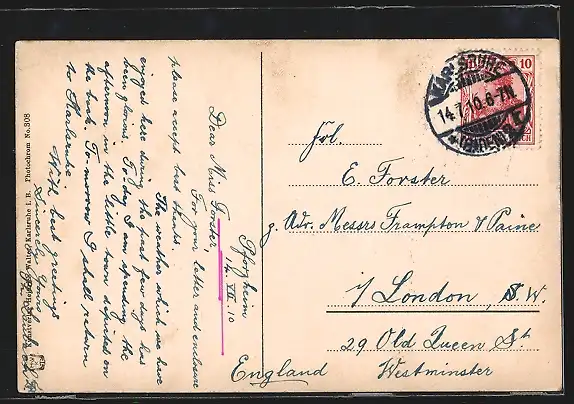 Pforzheim
14. VII. 10
Dear Miss Forster,
For your letter and enclosure
please accept best thanks.
The weather which we have
enjoyed here during the past few days has
been glorious. To-day I am spending the
afternoon in the little town depicted on
the back. To-morrow I shall return
to Karlsruhe
With best greetings
Sincerely Yours
Photochrom No. 308
KARLSRUHE
14.7.10. 6-7N.
(BADEN)
10
Frl.
E. Forster
g. Adr. Messrs Frampton & Paine
London, S.W.
29 Old Queen St.
Westminster
England